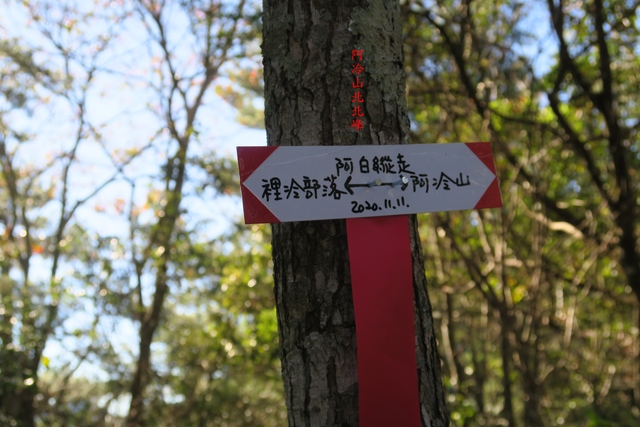 阿冷山北北峰
阿白縱走
裡冷部落←→阿冷山
2020.11.11.